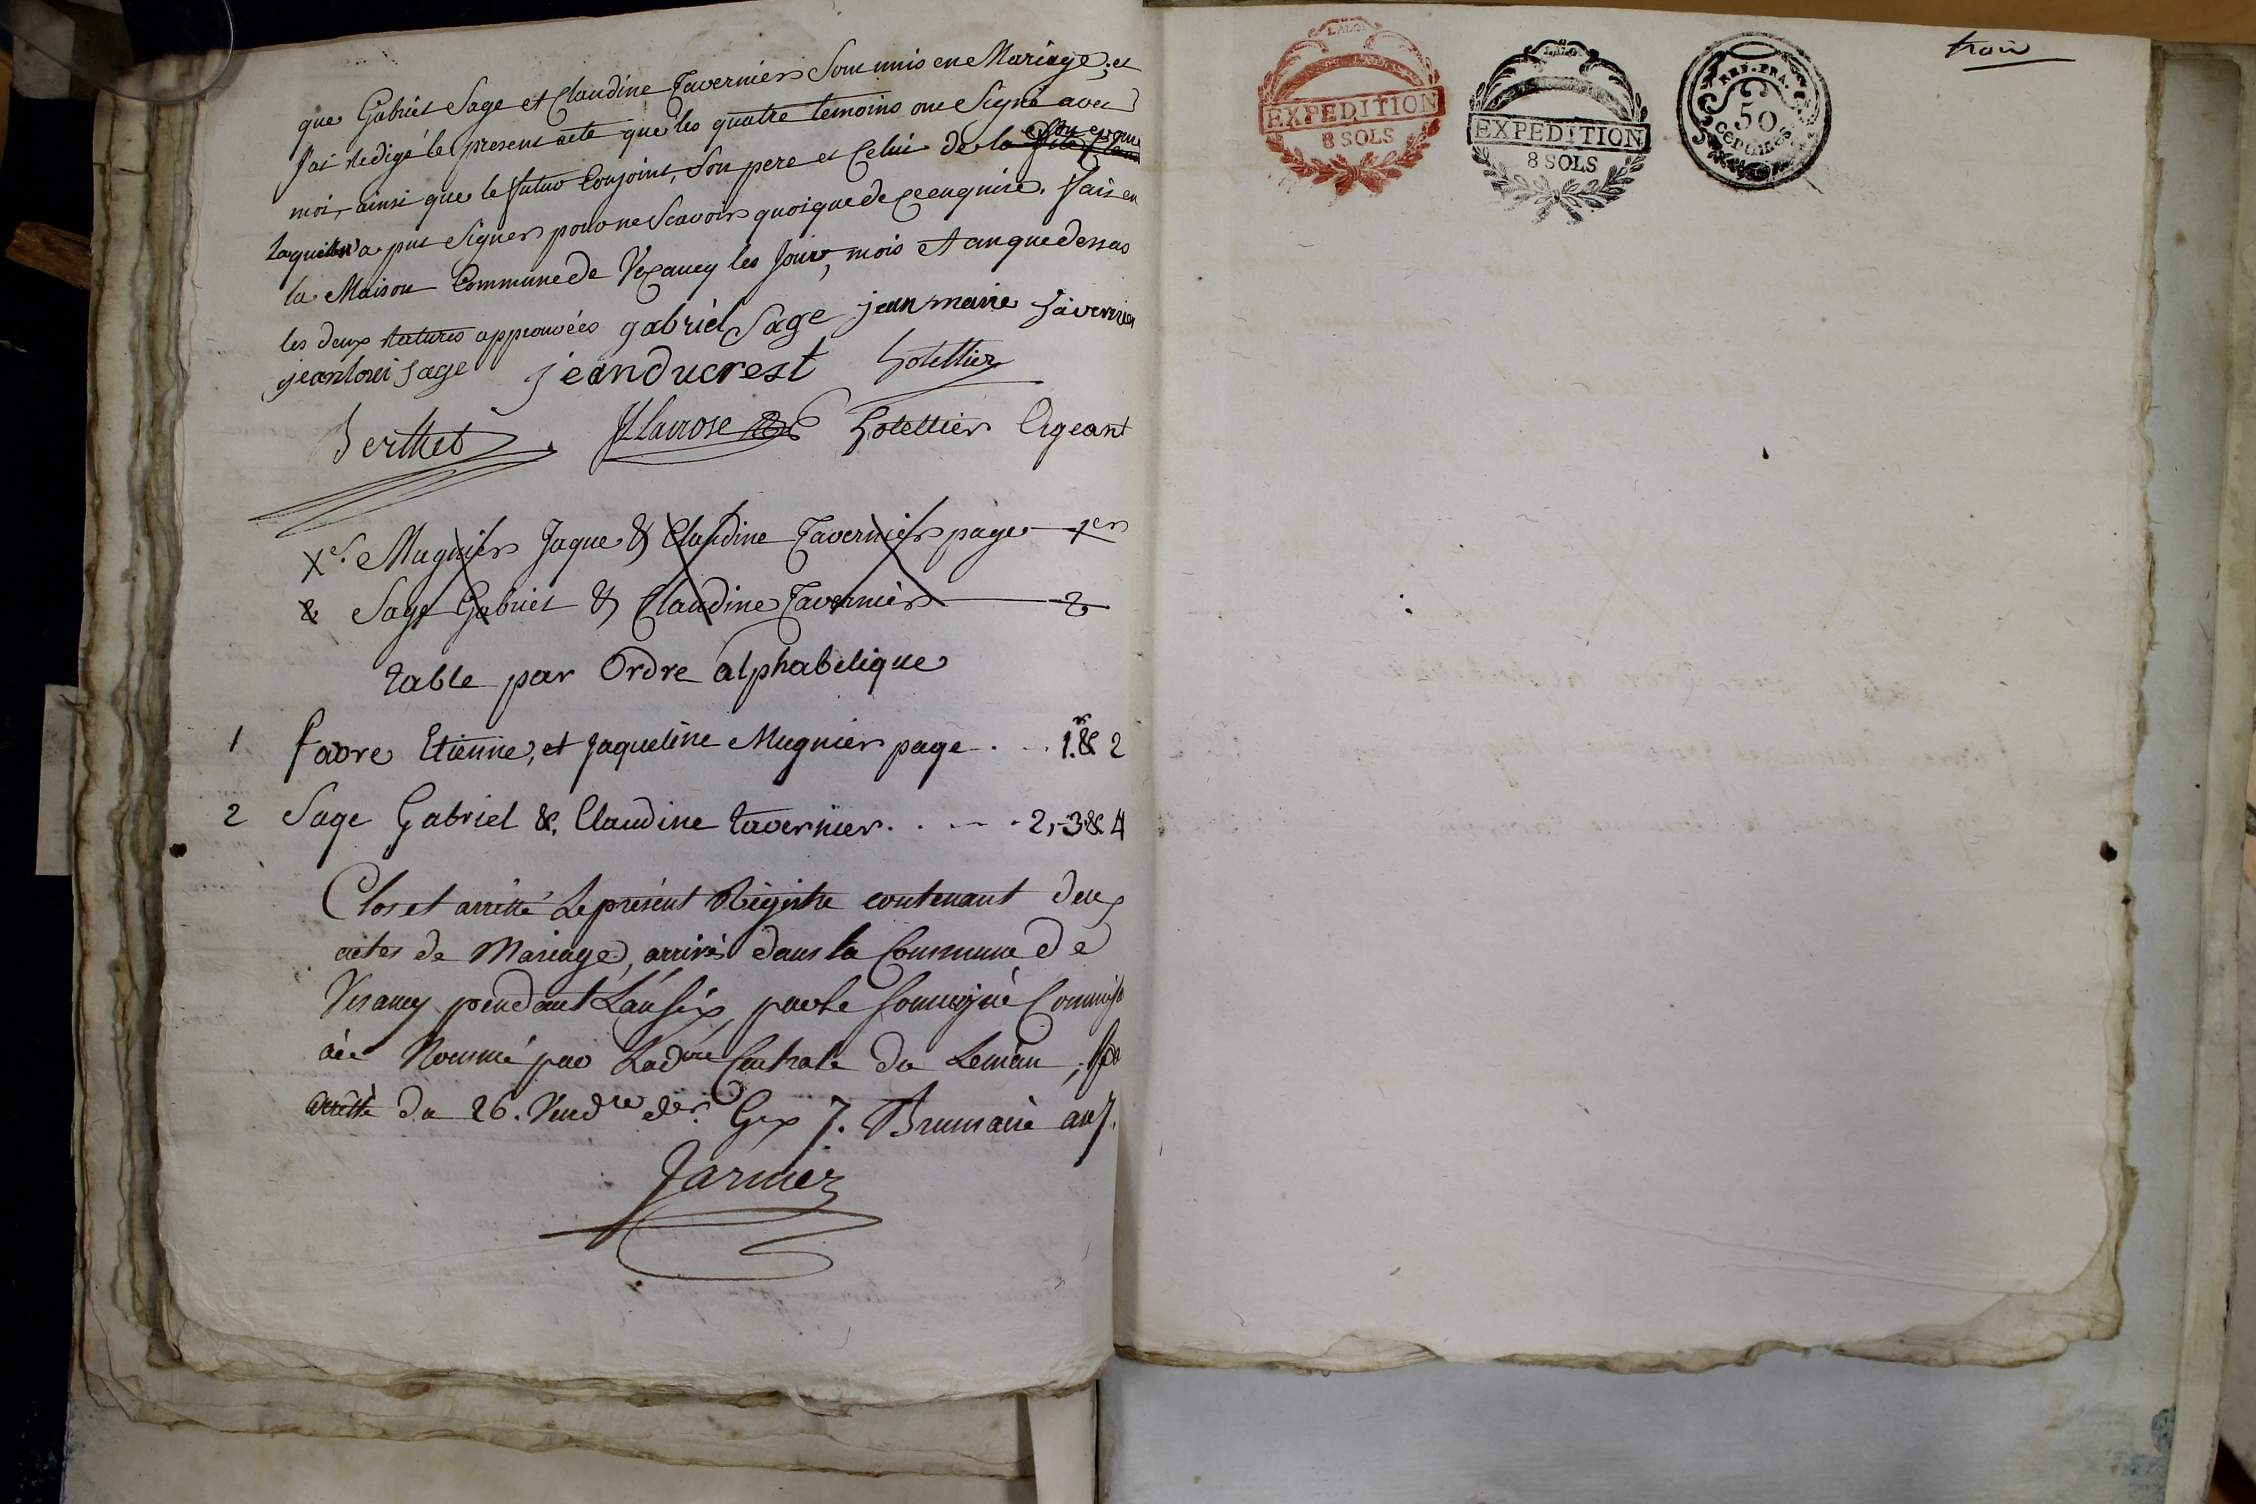 que Gabriel Sage et Claudine Tavernier Sont unis en Mariage, et
J'ai redigé le present acte que les quatre temoins ont Signé avec
moi, ainsi que le futur Conjoint, Son pere et Celui de la
Laquelle n'a put Signer pour ne Scavoir quoique de ce enquise. fait en
la Maison Commune de Vezancy les Jour, mois et an que dessus
les deux ratures approuvées gabriel Sage jean marie Tavernier
jean loui Sage jean ducrest Gotettier
Berthet Gotettier Ageant
1er Mugnier Jaque & Claudine Tavernier page 1er
2 Sage Gabriel & Claudine Tavernier 2
table par Ordre alphabetique
1 favre Etienne, et Jaqueline Mugnier page . . . 1.er & 2
2 Sage Gabriel & Claudine tavernier . . . . 2, 3 & 4
Clos et arrêté Le présent Régistre contenant deux
actes de Mariage, arrivés dans la Commune de
Vesancy pendant L'an Six, par le soussigné Commiss
aire Nommé par L'adon Centrale du Leman, par
arrêté du 26. Vendre der. Gex 7. Brumaire an 7.
trois
EXPEDITION
8 SOLS
EXPEDITION
8 SOLS
REP. FRA.
50
CENTIMES